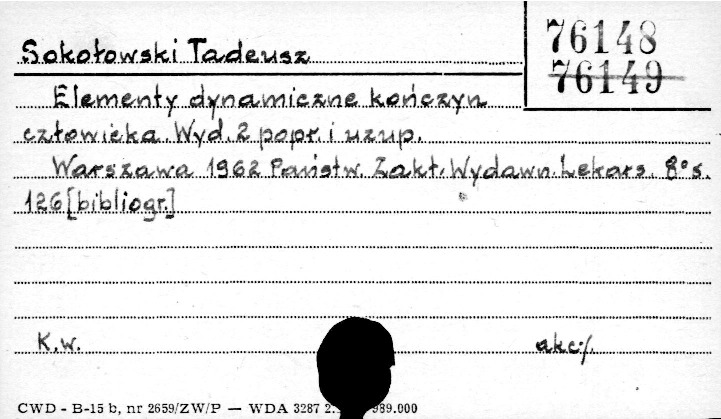 Sokołowski Tadeusz
76148
76149
Elementy dynamiczne kończyn
człowieka. Wyd. 2 popr. i uzup.
Warszawa 1962 Państw. Zakł. Wydawn. Lekars. 8° s.
126 [bibliogr.]
K.w. akc:/.
CWD - B-15 b, nr 2659/ZW/P — WDA 3287 989.000